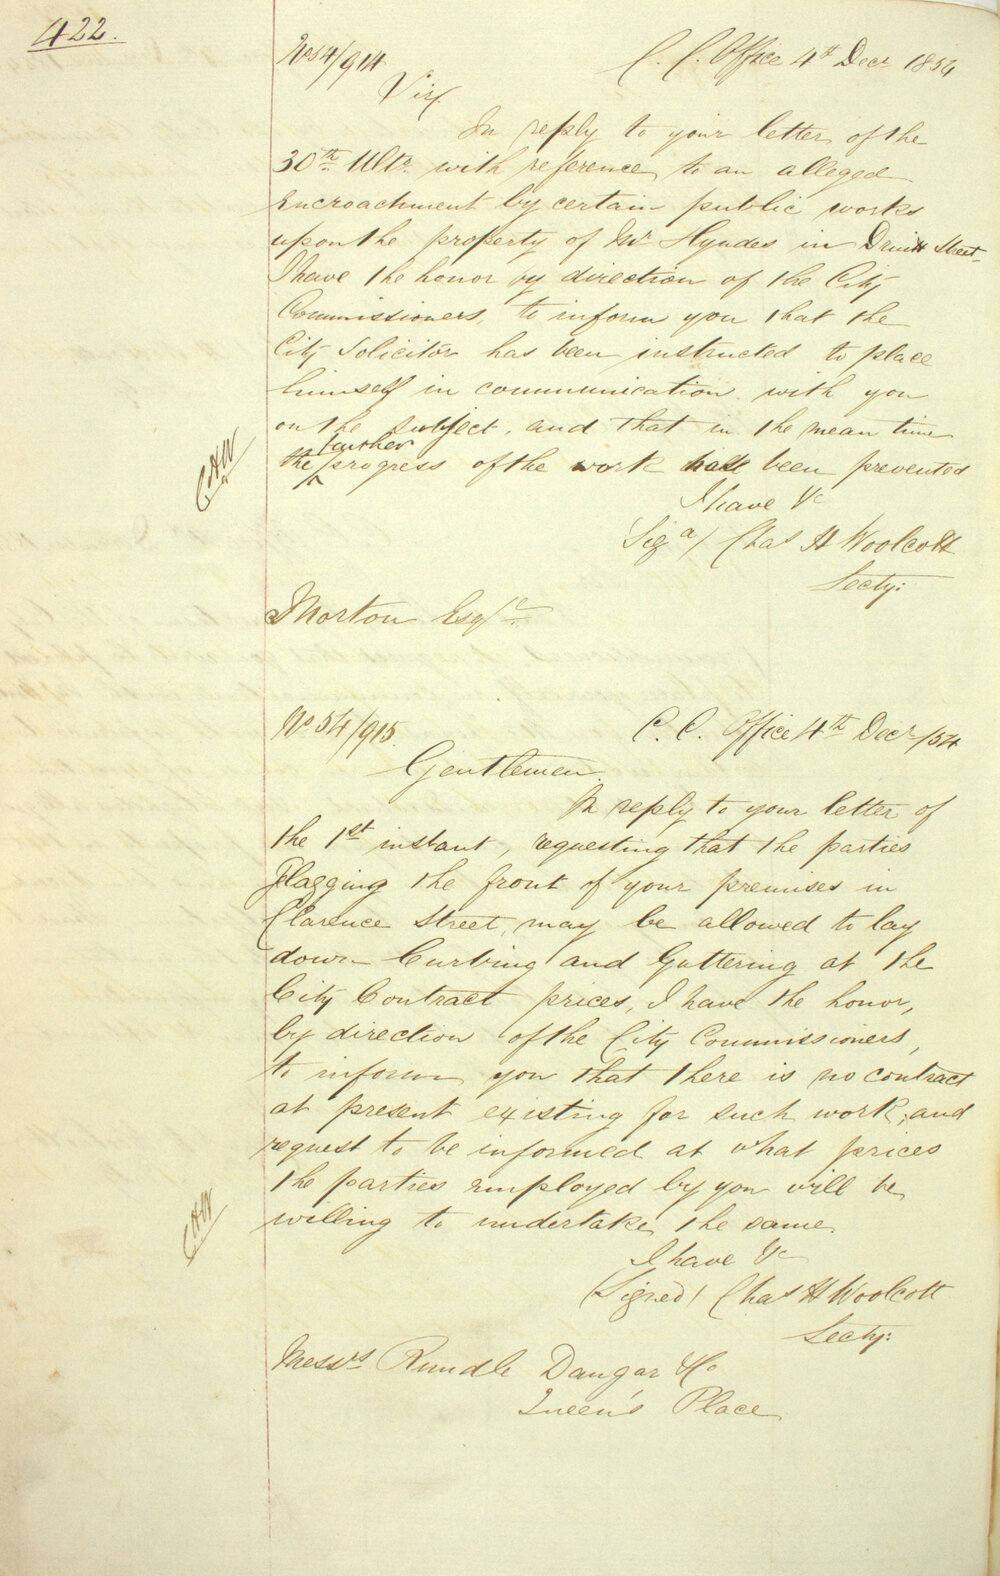 422.
No 54/914. C. C. Office 4th Decr 1854
Sir,
In reply to your letter of the
30th Ulto. with reference to an alleged
encroachment by certain public works
upon the property of Mr Hyndes in Druitt Street,
I have the honor by direction of the City
Commissioners, to inform you that the
City Solicitor has been instructed to place
himself in communication with you
on the subject, and that in the mean time
further
the ^ progress of the work has been prevented
CHW
I have &c
Sigd/ Chas H Woolcott
Secty:
Morton Esqre
No 54/915. C. C. Office 4th Decr /54
Gentlemen.
In reply to your letter of
the 1st instant, requesting that the parties
Flagging the front of your premises in
Clarence Street, may be allowed to lay
down Curbing and Guttering at the
City Contract prices, I have the honor,
by direction of the City Commissioners,
to inform you that there is no contract
at present existing for such work; and
request to be informed at what prices
the parties employed by you will be
willing to undertake the same.
CHW
I have &c
(Signed) Chas H Woolcott
Secty:
Messrs Rundle Dangar & Co
Queen's Place